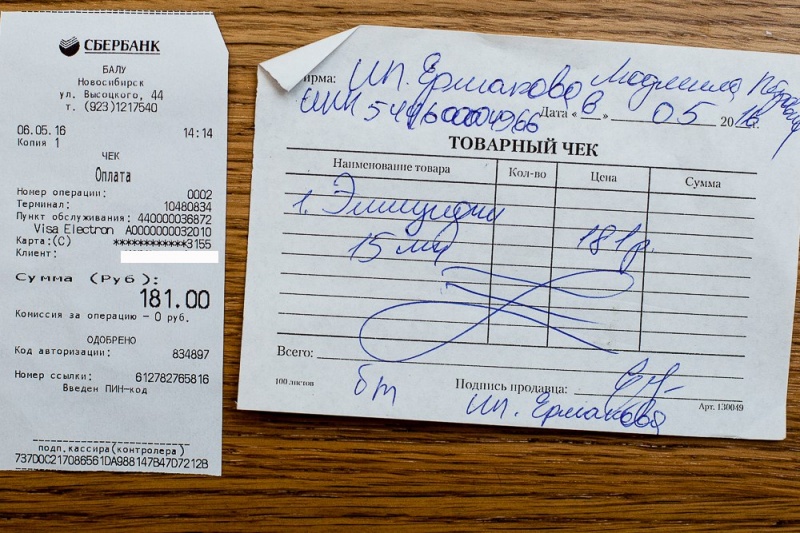 СБЕРБАНК
БАЛУ
Новосибирск
ул. Высоцкого, 44
т. (923)1217540
06.05.16 14:14
Копия 1
ЧЕК
Оплата
Номер операции: 0002
Терминал: 10480834
Пункт обслуживания: 440000036872
Visa Electron A0000000032010
Карта:(С) ************3155
Клиент:
Сумма (Руб):
181.00
Комиссия за операцию – 0 руб.
ОДОБРЕНО
Код авторизации: 834897
Номер ссылки: 612782765816
Введен ПИН-код
подп.кассира(контролера)
73700C217086561DA988147B47D7212B
ирма: ИП. Ермакова Людмила
ИНН Дата « 6 » 05 2016г.
ТОВАРНЫЙ ЧЕК
Наименование товара Кол-во Цена Сумма
1. Эпицидин
15 мл 181р.
Всего:
100 листов бт Подпись продавца:
ип. Ермакова Арт. 130049